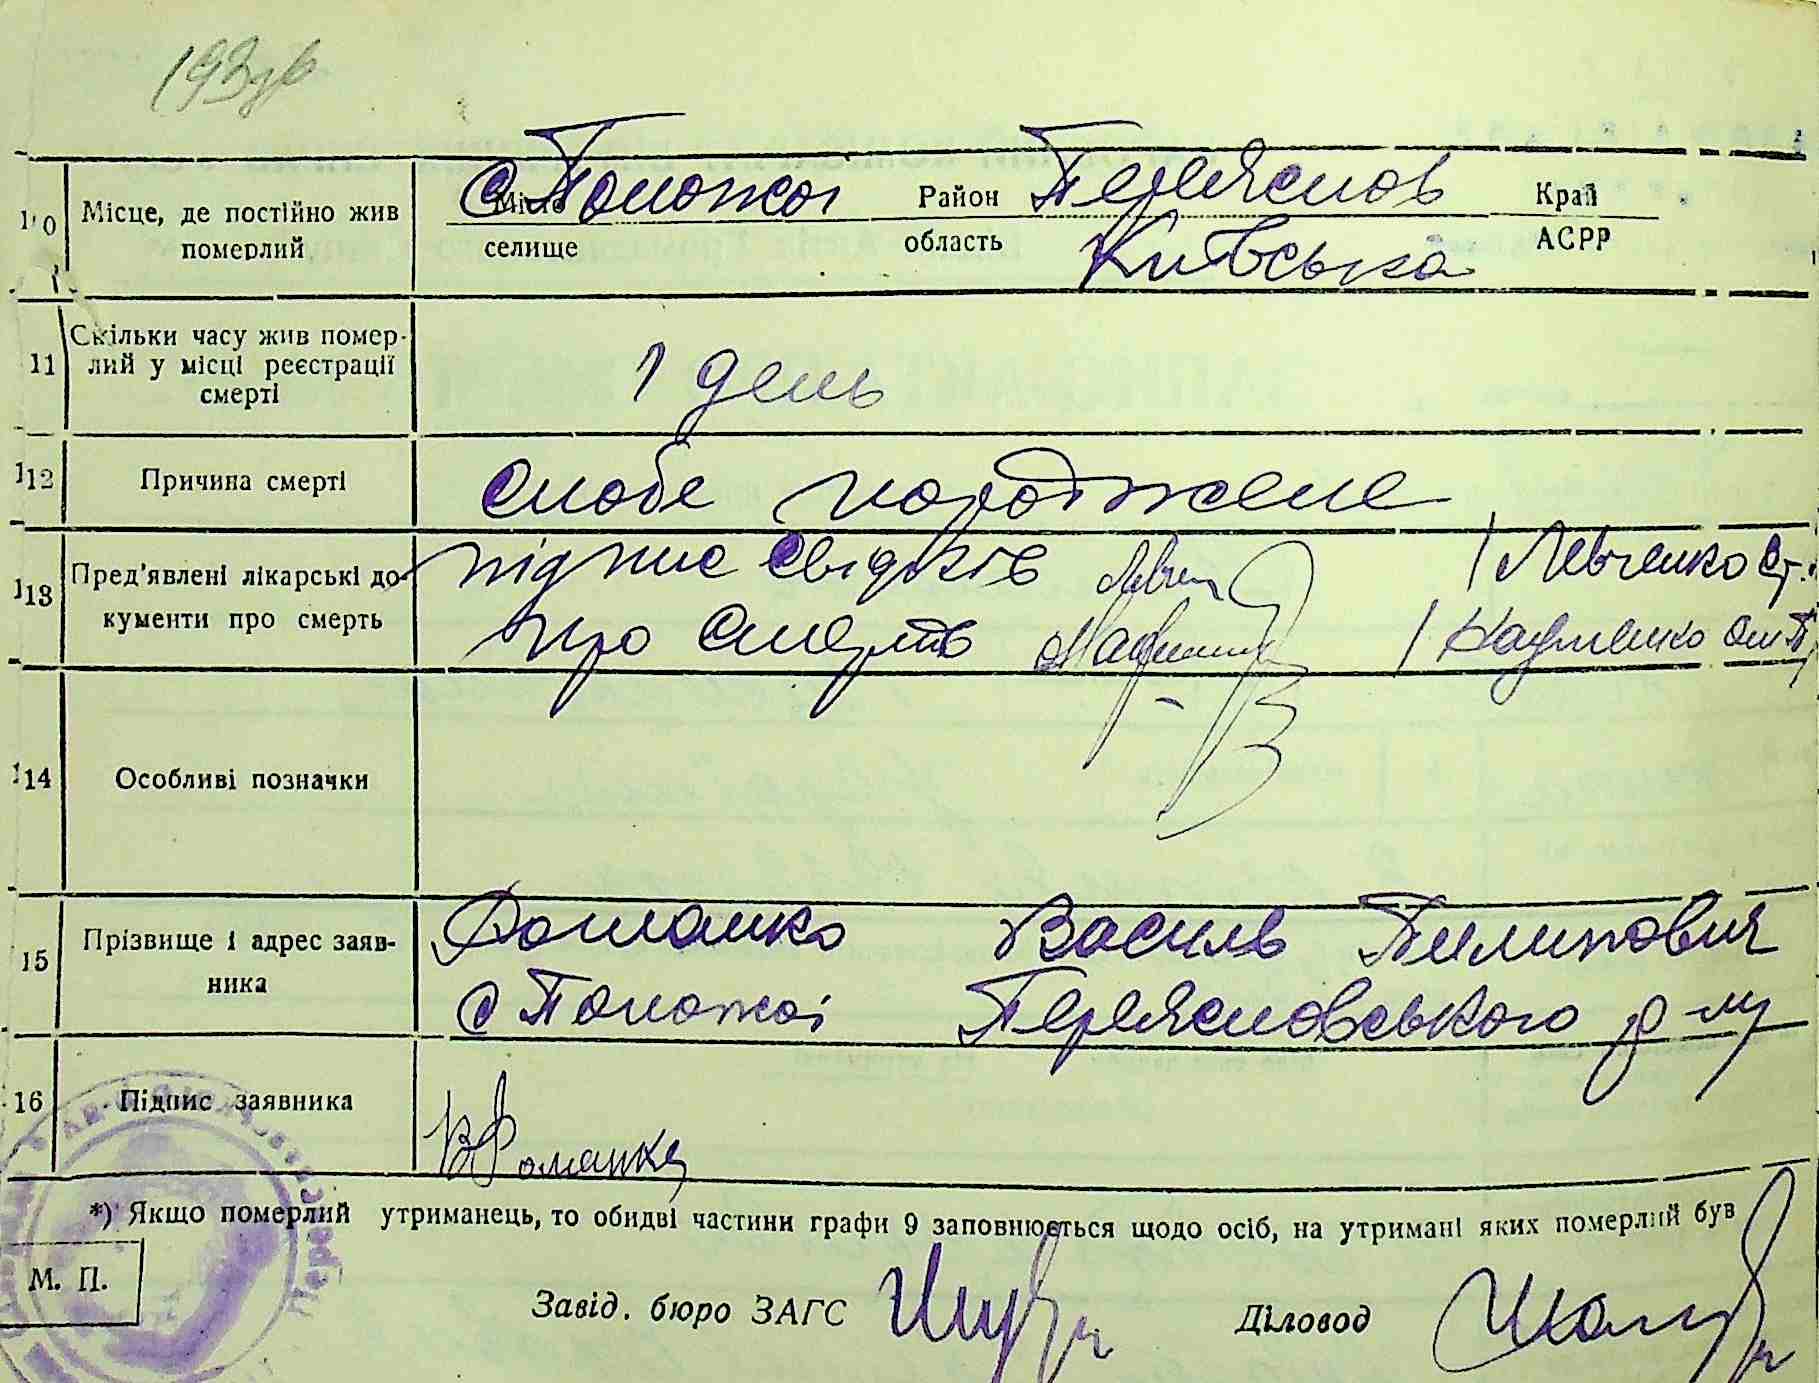 193зв
10 Місце, де постійно жив померлий
с Положаї Район Переяслов Край
Місто
селище область Київська АСРР
11 Скільки часу жив помер-
лий у місці реєстрації
смерті
1 день
12 Причина смерті
слабе народжене
13 Пред'явлені лікарські до-
кументи про смерть
підпис свідків / Левченко
про смерть / Науменко
14 Особливі позначки
15 Прізвище і адрес заяв-
ника
Фоманко Василь Пилипович
с Положаї Переясловського р-ну
16 Підпис заявника
ВФоманко
*) Якщо померлий утриманець, то обидві частини графи 9 заповнюється щодо осіб, на утримані яких померлий був
М. П.
Завід. бюро ЗАГС Діловод